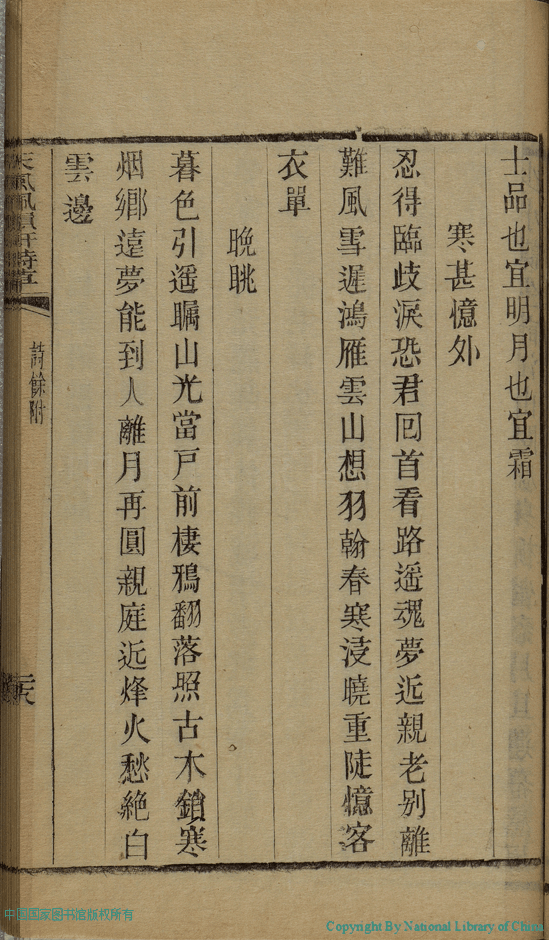 士品也宜明月也宜霜
寒甚憶外
忍得臨歧淚恐君回首看路遥魂夢近親老別離
難風雪遲鴻雁雲山想羽翰春寒浸曉重陡憶客
衣單
晚眺
暮色引遥矚山光當戸前棲鴉翻落照古木鎖寒
烟鄉遠夢能到人離月再圓親庭近烽火愁絶白
雲邊
詩餘附
二六
中国国家图书馆版权所有
Copyright By National Library of China